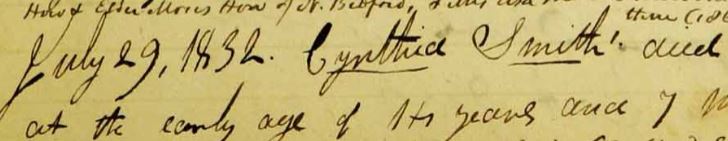 How & Elder Moses How of N. Bedford, & Mrs
time (18
July 29, 1832. Cynthia Smith died
at the early age of years and 7